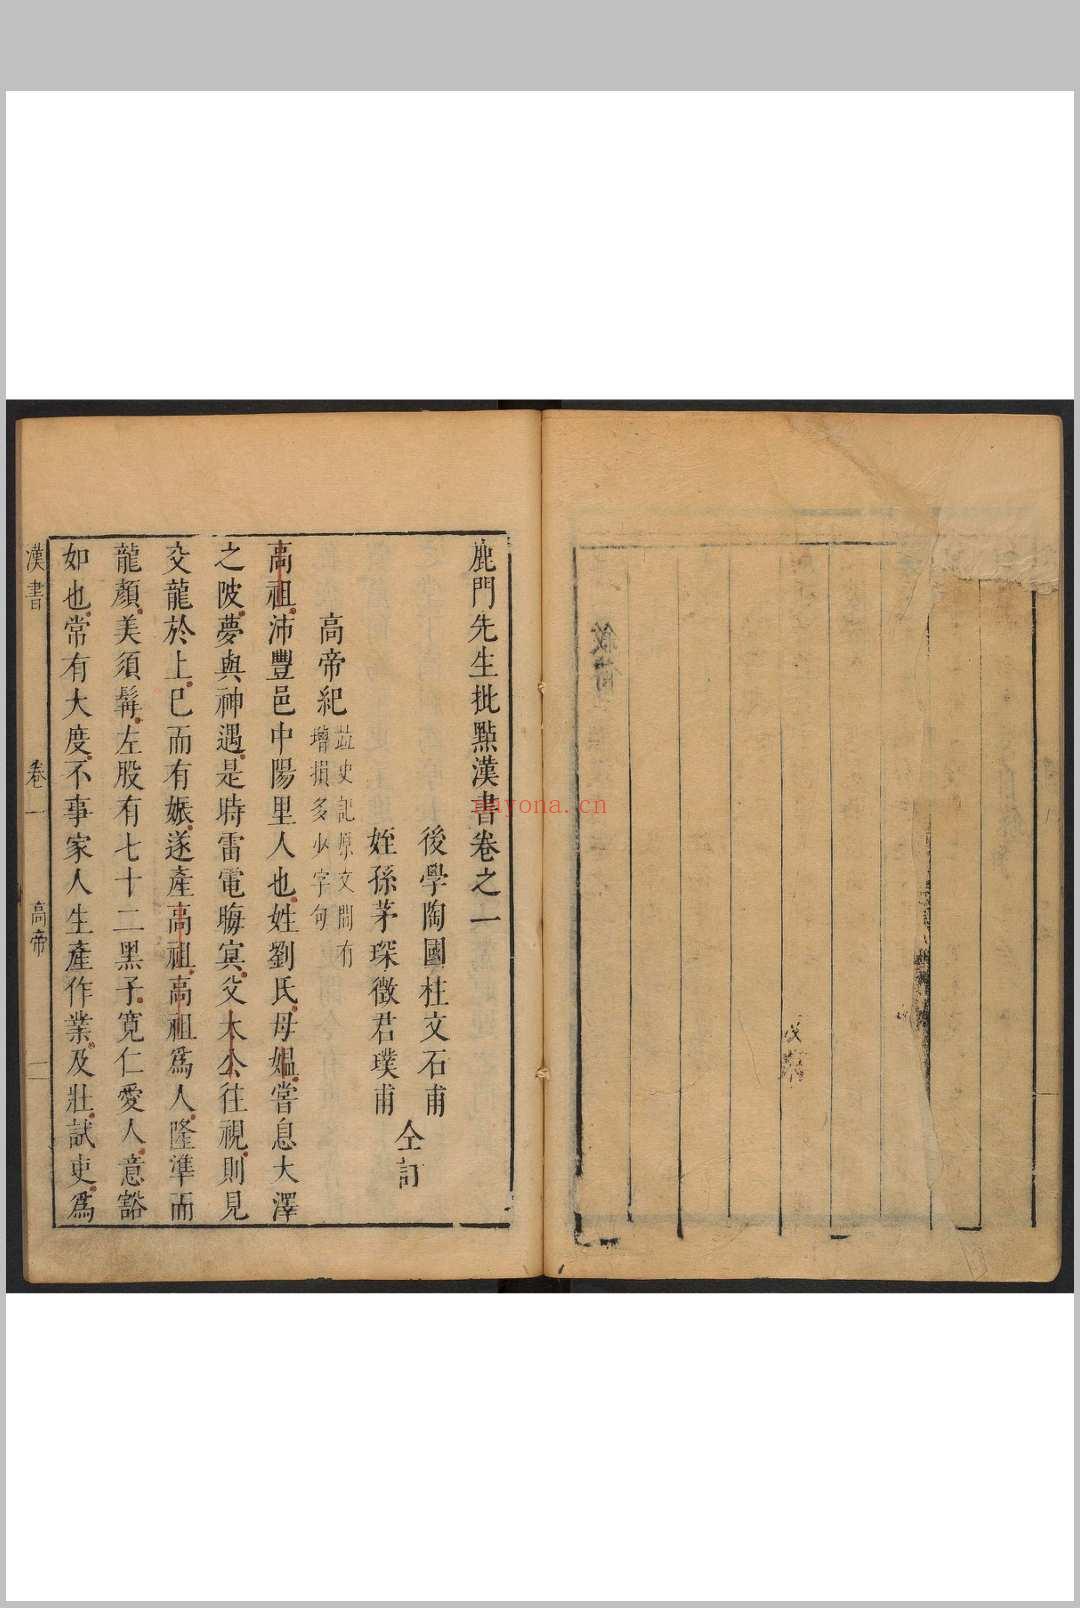 鹿門先生批點漢書卷之一
後學陶國柱文石甫
姪孫茅琛徵君璞甫
仝訂
高帝紀
茲史記原文間有
增損多少字句
高祖沛豐邑中陽里人也姓劉氏母媼嘗息大澤
之陂夢與神遇是時雷電晦冥父太公往視則見
交龍於上巳而有娠遂產高祖高祖爲人隆準而
龍顏美須髯左股有七十二黑子寬仁愛人意豁
如也常有大度不事家人生產作業及壯試吏爲
漢書
卷一
高帝
一
guyona.cn